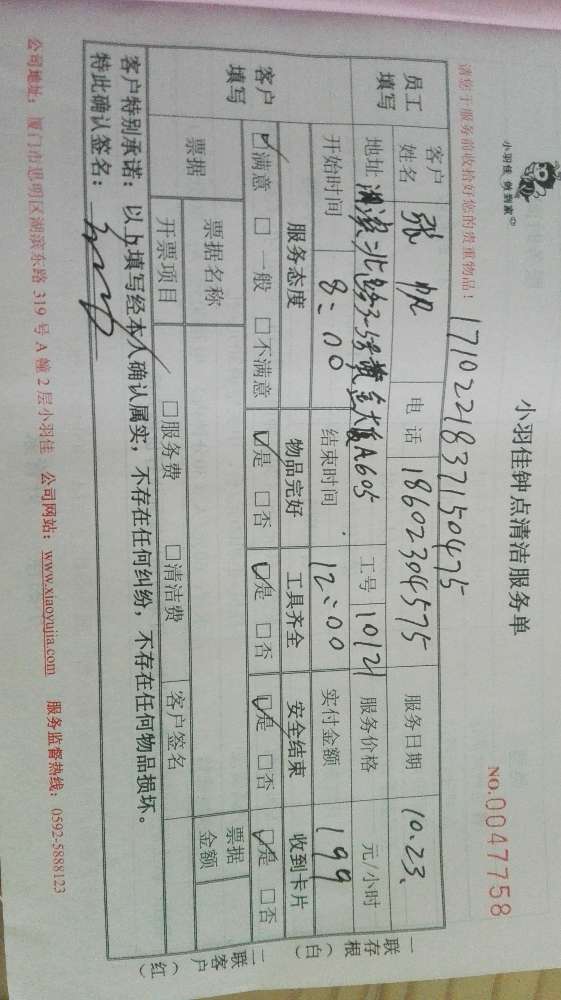 小羽佳 做到家
小羽佳钟点清洁服务单
NO.0047758
请您于服务前收拾好您的贵重物品！
17102218371504​75
员工填写 客户姓名 张帆 电话 18602304575 服务日期 10.23、
地址 湖滨北路35号黄金大厦A605 工号 10121 服务价格 元/小时
开始时间 8：00 结束时间 12：00 实付金额 199
客户填写 服务态度 物品完好 工具齐全 安全结束 收到卡片
☑满意 □一般 □不满意 ☑是 □否 ☑是 □否 ☑是 □否 ☑是 □否
票据 票据名称 票据金额
开票项目 □服务费 □清洁费 客户签名
客户特别承诺：以上填写经本人确认属实，不存在任何纠纷，不存在任何物品损坏。
特此确认签名：
公司地址：厦门市思明区湖滨东路319号A幢2层小羽佳 公司网站：www.xiaoyujia.com 服务监督热线：0592-5888123
一联存根（白）
二联客户（红）